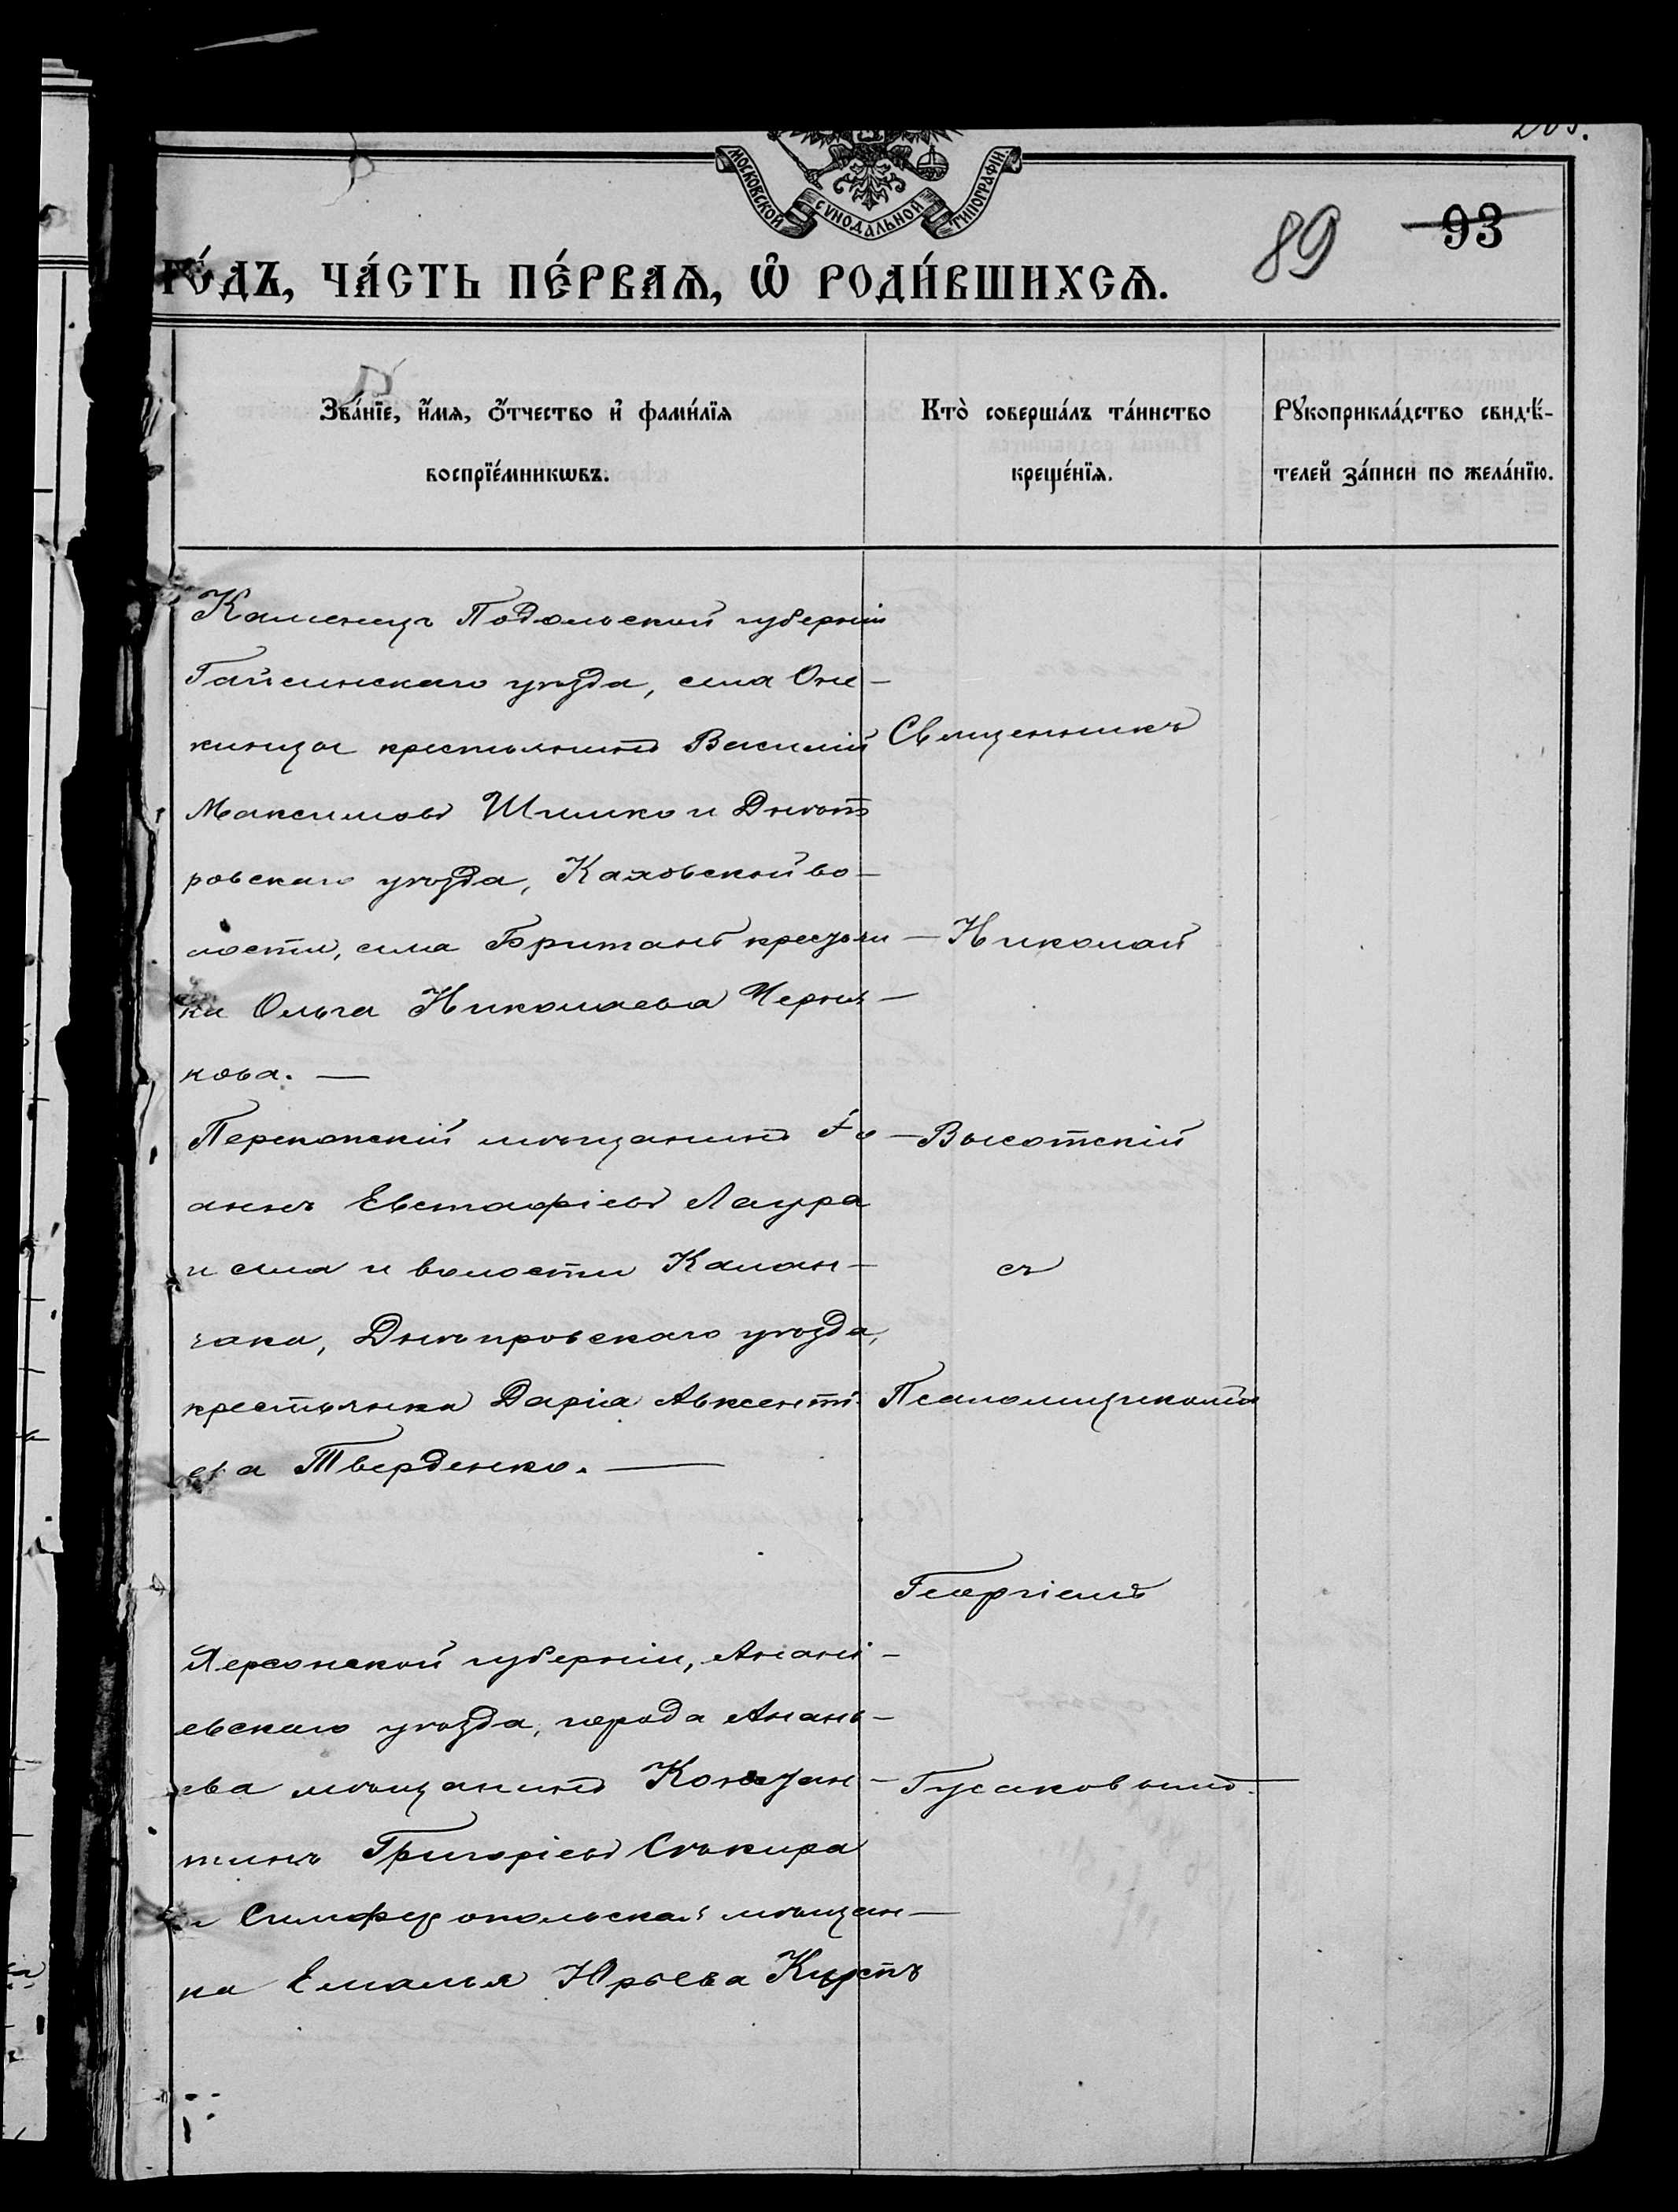 МОСКОВСКОЙ СѴНОДАЛЬНОЙ ТИПОГРАФІИ.
89 93
го́дъ, ча́сть пе́рваѧ, ѡ҆ роди́вшихсѧ.
Зва́нїе, и҆́мѧ, ѻ҆́тчество и҆ фами́лїѧ
воспрїе́мникѡвъ.
Кто̀ соверша́лъ та́инство
креще́нїѧ.
Рꙋкоприкла́дство свидѣ́-
телей за́писи по жела́нїю.
Каменецъ Подольской губерніи
Гайсинскаго уѣзда, села
кресть­янинъ Василій
Максимовъ Шишко и Днѣп
ровскаго уѣзда, Каховской во-
лости, села Британъ крестьян
ка Ольга Николаева Черня-
кова. —
Перекопскій мѣщанинъ Іо
аннъ Евстафіевъ Лаура
и села и волости Калан-
чака, Днѣпровскаго уѣзда,
крестьянка Дарія Авксенті
ева Тверденко. —
Херсонской губерніи, Анані-
евскаго уѣзда, города Анань-
ева мѣщанинъ Констан-
тинъ Григоріевъ Сѣкира
и Симферопольская мѣщан-
ка Емилія Юрьева
Священникъ
— Николай
— Высотскій
съ
Псаломщикомъ
Георгіемъ
Гусаковымъ. —